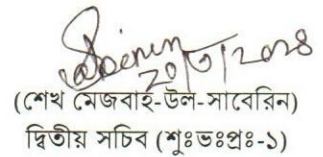 20/3/2024
(শেখ মেজবাহ-উল-সাবেরিন)
দ্বিতীয় সচিব (শুঃভঃপ্রঃ-১)